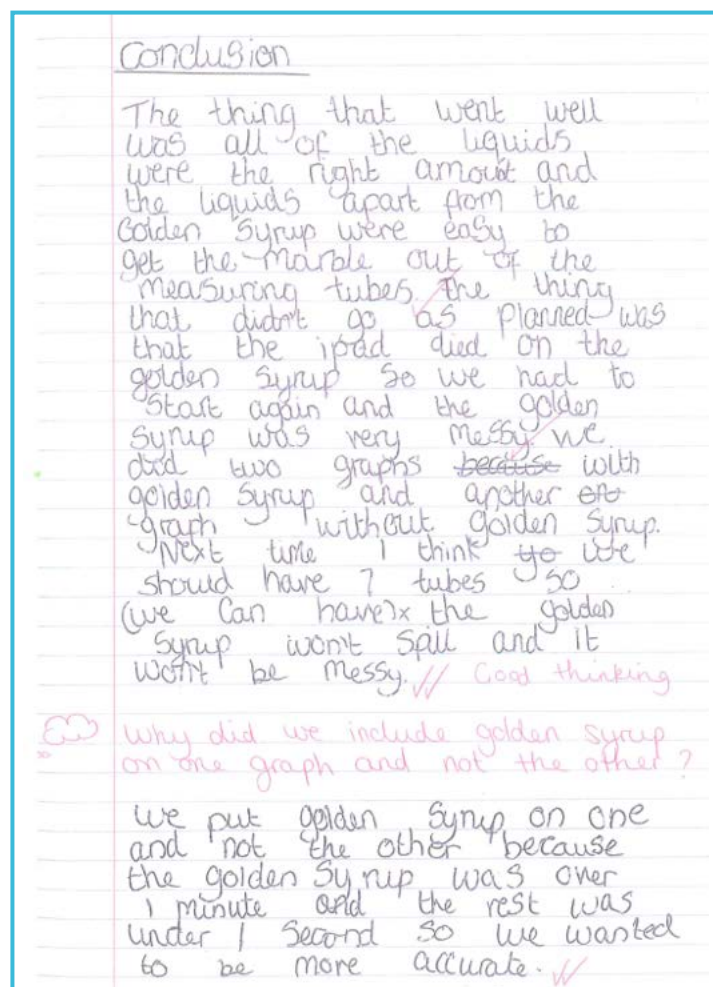 Conclusion
The thing that went well
was all of the liquids
were the right amount and
the liquids apart from the
Golden Syrup were easy to
get the marble out of the
measuring tubes. The thing
that didn't go as planned was
that the ipad died on the
golden syrup so we had to
start again and the golden
syrup was very messy we
did two graphs because with
golden syrup and another
graph without golden syrup.
Next time I think we
should have 7 tubes so
(we can have)x the golden
syrup won't spill and it
won't be messy. Good thinking
Why did we include golden syrup
on one graph and not the other?
We put golden syrup on one
and not the other because
the golden syrup was over
1 minute and the rest was
under 1 second so we wanted
to be more accurate.